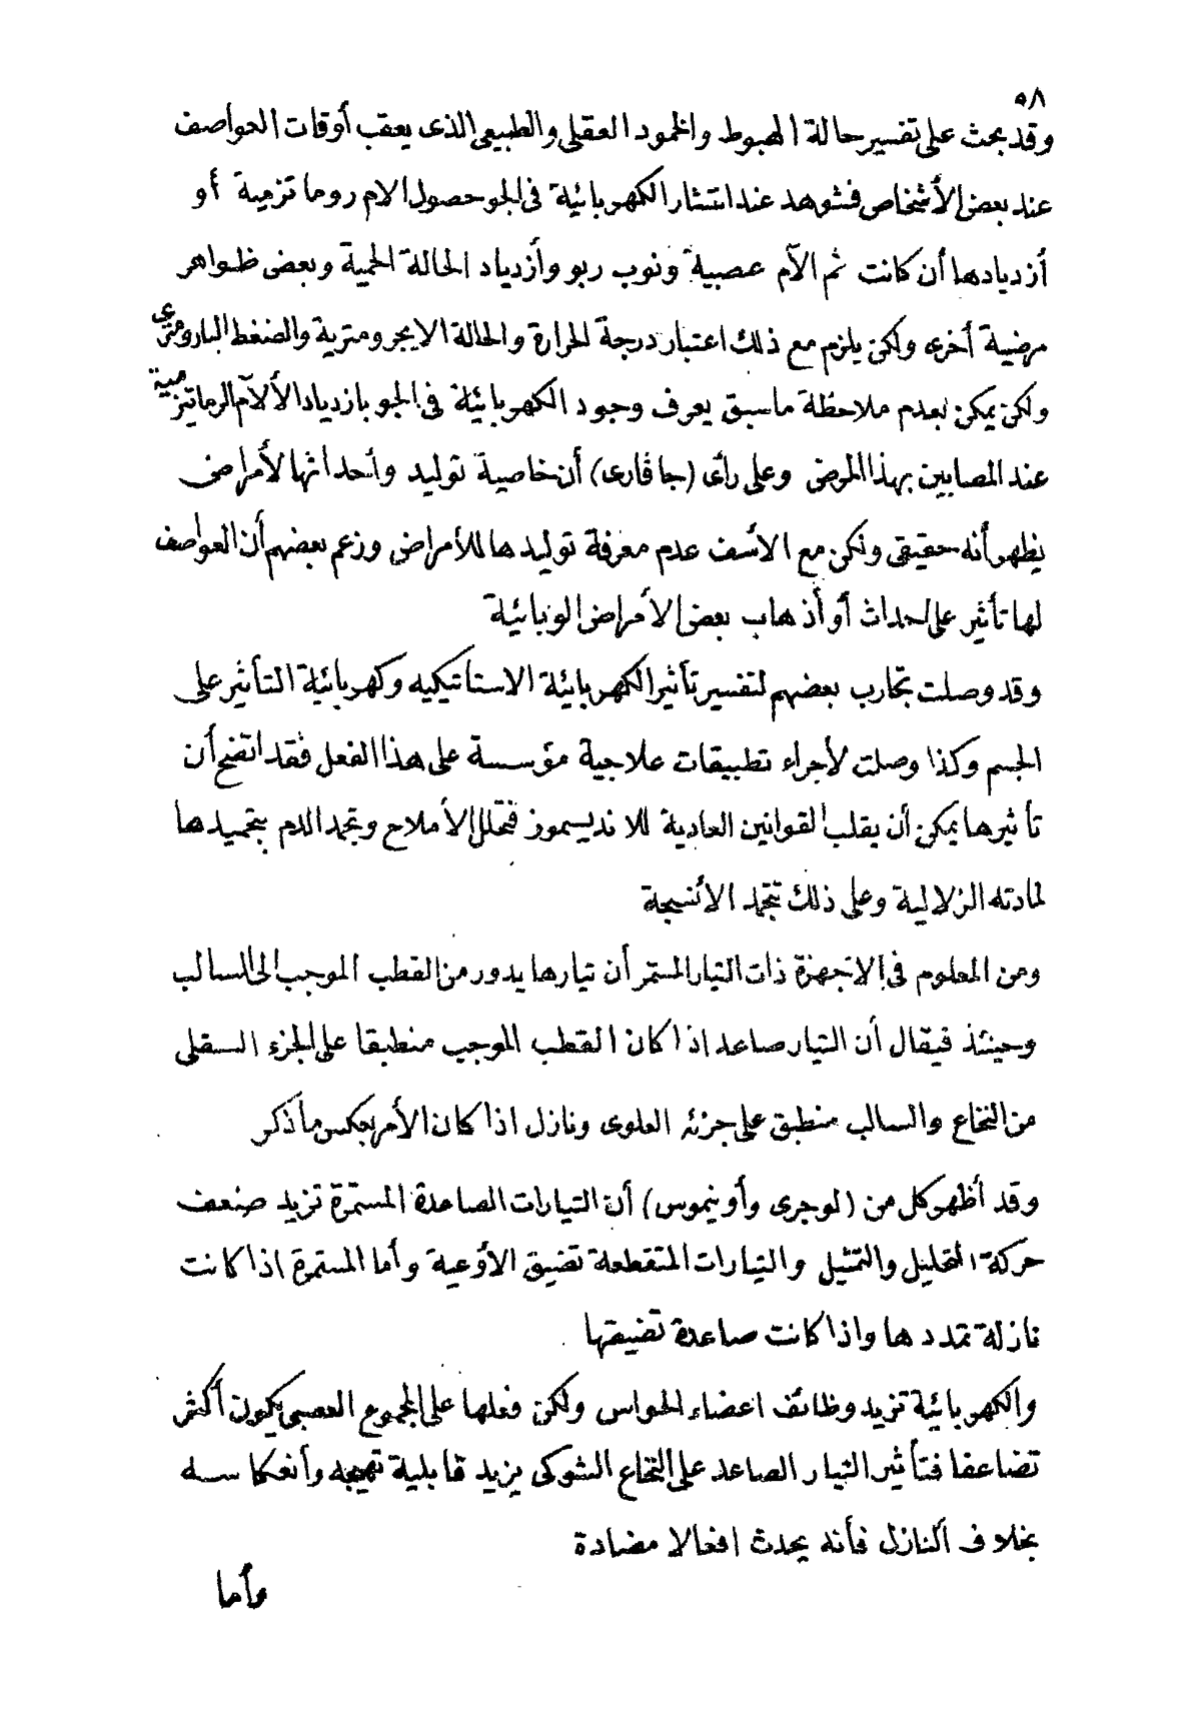 ٥٨
وقد بحث على تفسير حالة الهبوط والخمود العقلى والطبيعى الذى يعقب أوقات العواصف
عند بعض الأشخاص فشوهد عند انتشار الكهربائية فى الجو حصول الام روماتزمية أو
أزديادها أن كانت ثم الآم عصبية ونوب ربو وأزدياد الحالة الحمية وبعض ظواهر
مرضية أخرى ولكن يلزم مع ذلك اعتبار درجة الحرارة والحالة الايجرومترية والضغط البارومترى
ولكن يمكن بعدم ملاحظة ماسبق يعرف وجود الكهربائية فى الجو بازدياد الألآم الرماتيزمية
عند المصابين بهذا المرض وعلى رأى (جاڤارى) أن خاصية توليد وأحداثها لأمراض
يظهر أنه حقيقى ولكن مع الأسف عدم معرفة توليدها للأمراض وزعم بعضهم أن العواصف
لها تأثير على احداث أو أذهاب بعض الأمراض الوبائية
وقد وصلت تجارب بعضهم لتفسير تأثير الكهربائية الاستاتيكيه وكهربائية التأثير على
الجسم وكذا وصلت لأجراء تطبيقات علاجية مؤسسة على هذا الفعل فقد اتضح أن
تأثيرها يمكن أن يقلب القوانين العادية للاندیسموز فتحلل الأملاح وتجمد الدم بتجميدها
لمادته الزلالية وعلى ذلك تتجمد الأنسجة
ومن المعلوم فى الاجهزة ذات التيار المستمر أن تيارها يدور من القطب الموجب الى السالب
وحينئذ فيقال أن التيار صاعد اذا كان القطب الموجب منطبقا على الجزء السفلى
من النخاع والسالب منطبق على جزئه العلوى ونازل اذا كان الأمر بعكس ما ذكر
وقد أظهر كل من (لوجرى وأونيموس) أن التيارات الصاعدة المستمرة تزيد ضعف
حركة التحليل والتمثيل والتيارات المتقطعة تضيق الأوعية وأما المستمرة اذا كانت
نازلة تمددها واذا كانت صاعدة تضيقها
والكهربائية تزيد وظائف اعضاء الحواس ولكن فعلها على المجموع العصبى يكون أكثر
تضاعفا فتأثير التيار الصاعد على النخاع الشوكى يزيد قابلية تهيجه وأنعكاسه
بخلاف النازل فأنه يحدث افعالا مضادة
وأما